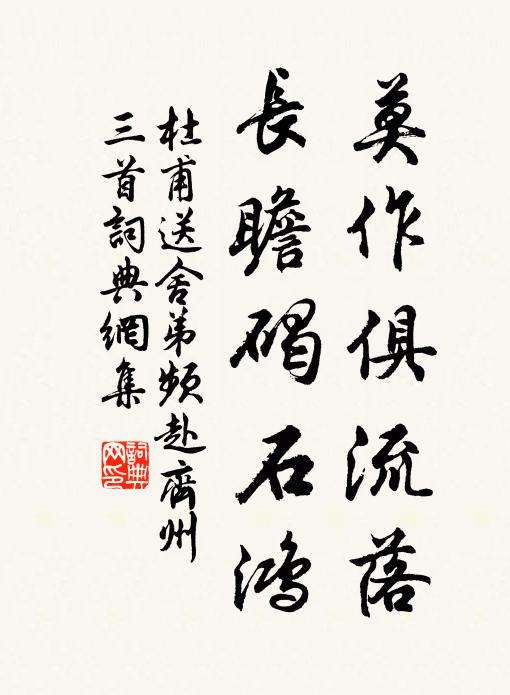 莫作俱流落
長瞻碣石鴻
杜甫送舍弟頻赴齊州
三首詞典網集
詞典
网印